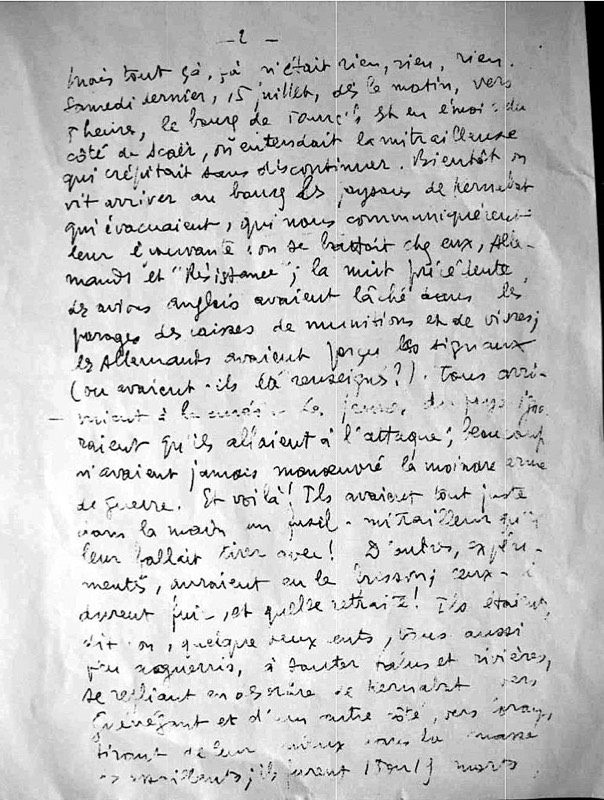 — 2 —
Mais tout çà, çà n'était rien, rien, rien.
Samedi dernier, 15 juillet, dès le matin, vers
heures, le bourg de est en émoi : du
côté de Scaër, on entendait la mitrailleuse
qui crépitait sans discontinuer. Bientôt on
vit arriver au bourg les paysans de Kernabat
qui évacuaient, qui nous communiquèrent
leur épouvante : on se battait chez eux, Alle-
mands et "Résistance"; la nuit précédente,
des avions anglais avaient lâché dans les
parages des caisses de munitions et de vivres;
les Allemands avaient perçu les signaux
(ou avaient-ils été renseignés ?). Tous arri-
vaient à la du pays
raient qu'ils allaient à l'attaque; beaucoup
n'avaient jamais manœuvré la moindre arme
de guerre. Et voilà! Ils avaient tout juste
dans la main un fusil-mitrailleur qu'il
leur fallait tirer avec! D'autres, expéri-
mentés, auraient eu le frisson; ceux-
durent fuir, et quelle retraite! Ils étaient,
dit-on, quelque deux cents, tous aussi
peu aguerris, à sauter talus et rivières,
se repliant en désordre de Kernabat vers
et d'un autre côté, vers
tirant de leur mieux dans la masse
assaillants; ils furent morts